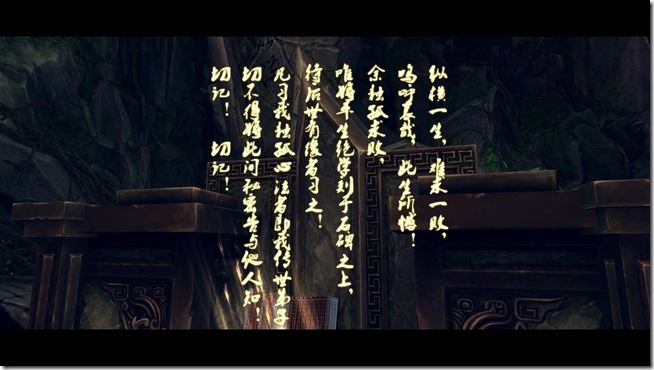 纵横一生，难求一败，
呜呼哀哉，此生所憾！
余独孤求败，
唯将平生绝学刻于石碑之上，
待后世有缘者习之！
凡习我独孤心法者即我传世弟子
切不得将此间秘密告与他人知！
切记！ 切记！